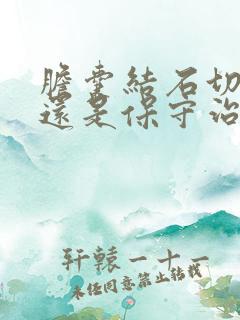 膽囊結石切
還是保守治
軒轅一十一
未经同意禁止转载